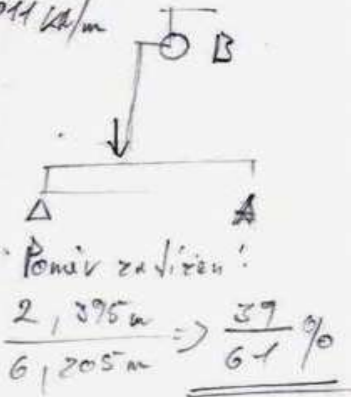 11 kN/m
B
Poměr zatížení:
2,395m => 39
6,205m 61 %